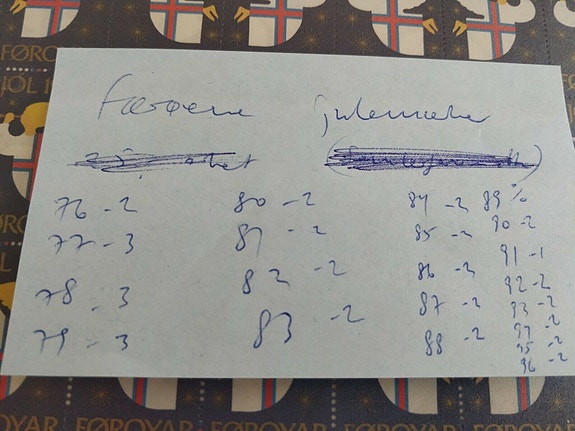 Færøerne julemærker
76 - 2
77 - 3
78 - 3
79 - 3
80 - 2
81 - 2
82 - 2
83 - 2
84 - 2
85 - 2
86 - 2
87 - 2
88 - 2
89 %
90 - 2
91 - 1
92 - 2
93 - 2
94 - 2
95 - 2
96 - 2
FØROYAR
FØROYAR